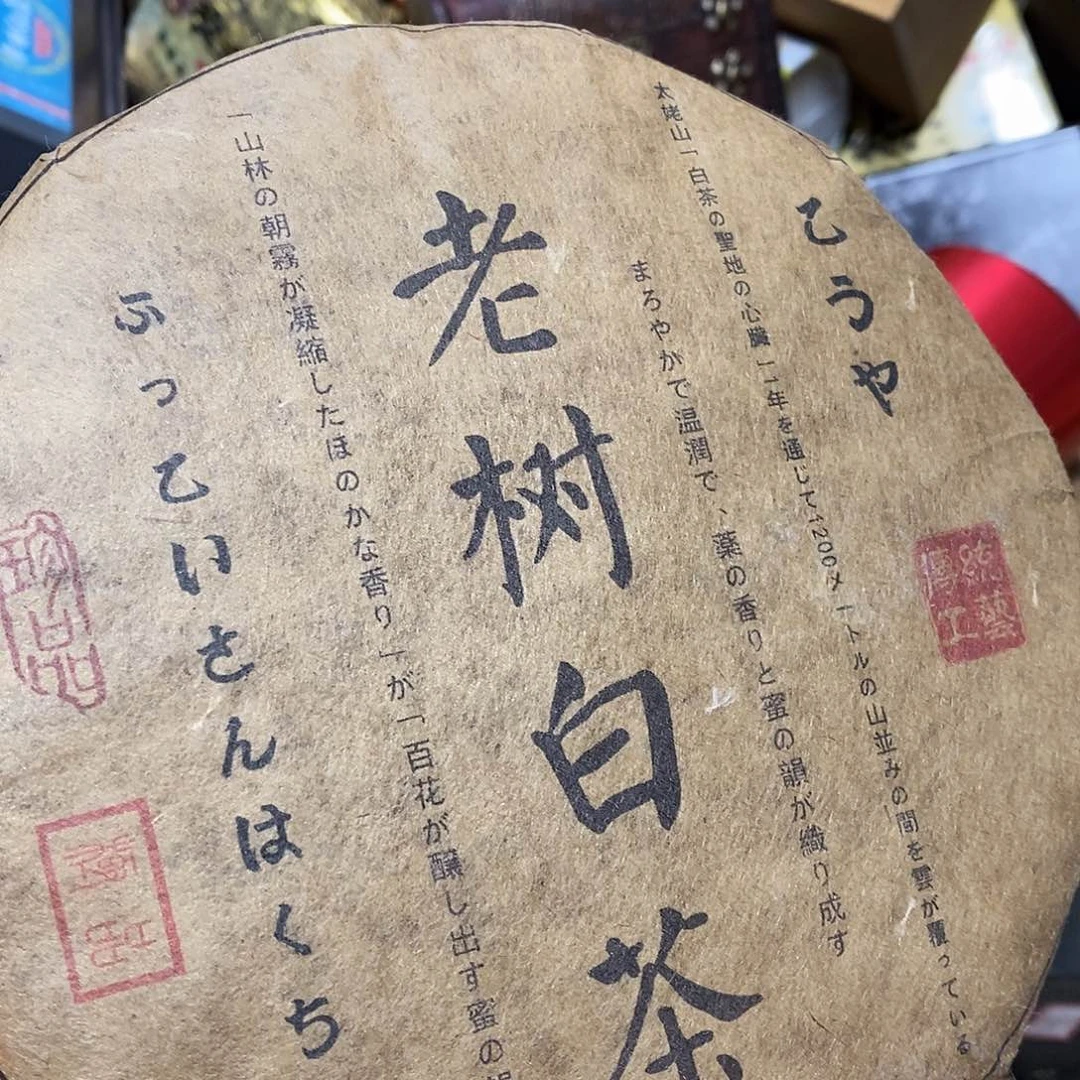 乙うや
傳統
工藝
太姥山「白茶の聖地の心臓」一年を通じて1200メートルの山並みの間を雲が覆っている
まろやかで温潤で、薬の香りと蜜の韻が織り成す
老树白茶
「山林の朝霧が凝縮したほのかな香り」が「百花が醸し出す蜜の
ふっ乙いさんはくち
珍品